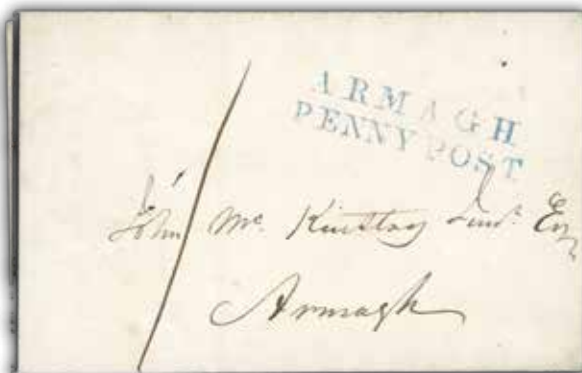 ARMAGH
PENNY POST
1
John Mc. Kinstry Junr. Esq
Armagh